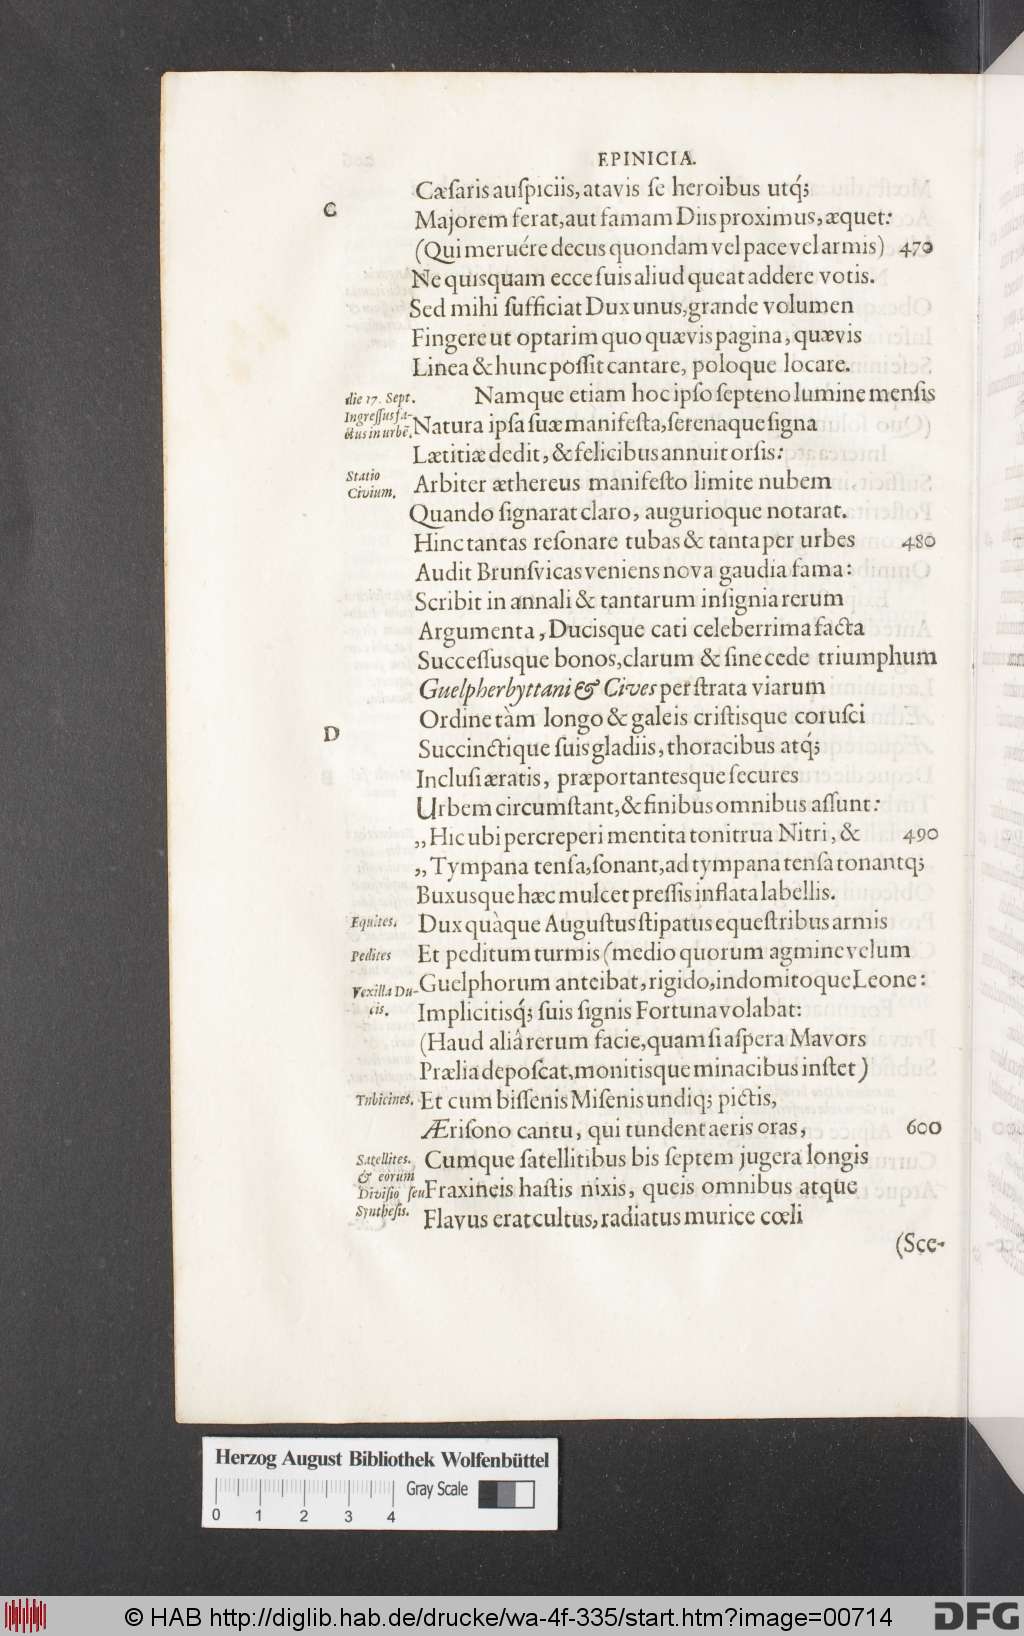 EPINICIA.
Cæſaris auſpiciis, atavis ſe heroibus utq́;
C
Majorem ferat, aut famam Diis proximus, æquet:
(Qui meruére decus quondam vel pace vel armis) 470
Ne quisquam ecce ſuis aliud queat addere votis.
Sed mihi ſufficiat Dux unus, grande volumen
Fingere ut optarim quo quævis pagina, quævis
Linea & hunc poſſit cantare, poloque locare.
die 17. Sept. Namque etiam hoc ipſo ſepteno lumine mensis
Ingreſſus fa-
ctus in urbē. Natura ipſa ſuæ manifeſta, ſerenaque ſigna
Lætitiæ dedit, & felicibus annuit orſis:
Statio
Civium. Arbiter æthereus manifeſto limite nubem
Quando ſignarat claro, augurioque notarat.
Hinc tantas reſonare tubas & tanta per urbes 480
Audit Brunſvicas veniens nova gaudia fama:
Scribit in annali & tantarum inſignia rerum
Argumenta, Ducisque cati celeberrima facta
Succeſſusque bonos, clarum & ſine cede triumphum
Guelpherbyttani & Cives per ſtrata viarum
Ordine tàm longo & galeis criſtisque coruſci
D
Succinctique ſuis gladiis, thoracibus atq́;
Incluſi æratis, præportantesque ſecures
Urbem circumſtant, & finibus omnibus aſſunt:
„Hic ubi percreperi mentita tonitrua Nitri, & 490
„Tympana tenſa, ſonant, ad tympana tenſa tonantq;
Buxusque hæc mulcet preſſis inflata labellis.
Equites. Dux quàque Auguſtus ſtipatus equeſtribus armis
Pedites Et peditum turmis (medio quorum agmine velum
Vexilla Du-
cis. Guelphorum anteibat, rigido, indomitoque Leone:
Implicitisq́; ſuis ſignis Fortuna volabat:
(Haud aliâ rerum facie, quam ſi aſpera Mavors
Prælia depoſcat, monitisque minacibus inſtet)
Tubicines. Et cum biſſenis Miſenis undiq; pictis,
Æriſono cantu, qui tundent aeris oras, 600
Satellites.
& eorum
Diviſio ſeu
Syntheſis. Cumque ſatellitibus bis ſeptem jugera longis
Fraxineis haſtis nixis, queis omnibus atque
Flavus erat cultus, radiatus murice cœli
(Sce-
Herzog August Bibliothek Wolfenbüttel
Gray Scale
0 1 2 3 4
© HAB http://diglib.hab.de/drucke/wa-4f-335/start.htm?image=00714
DFG